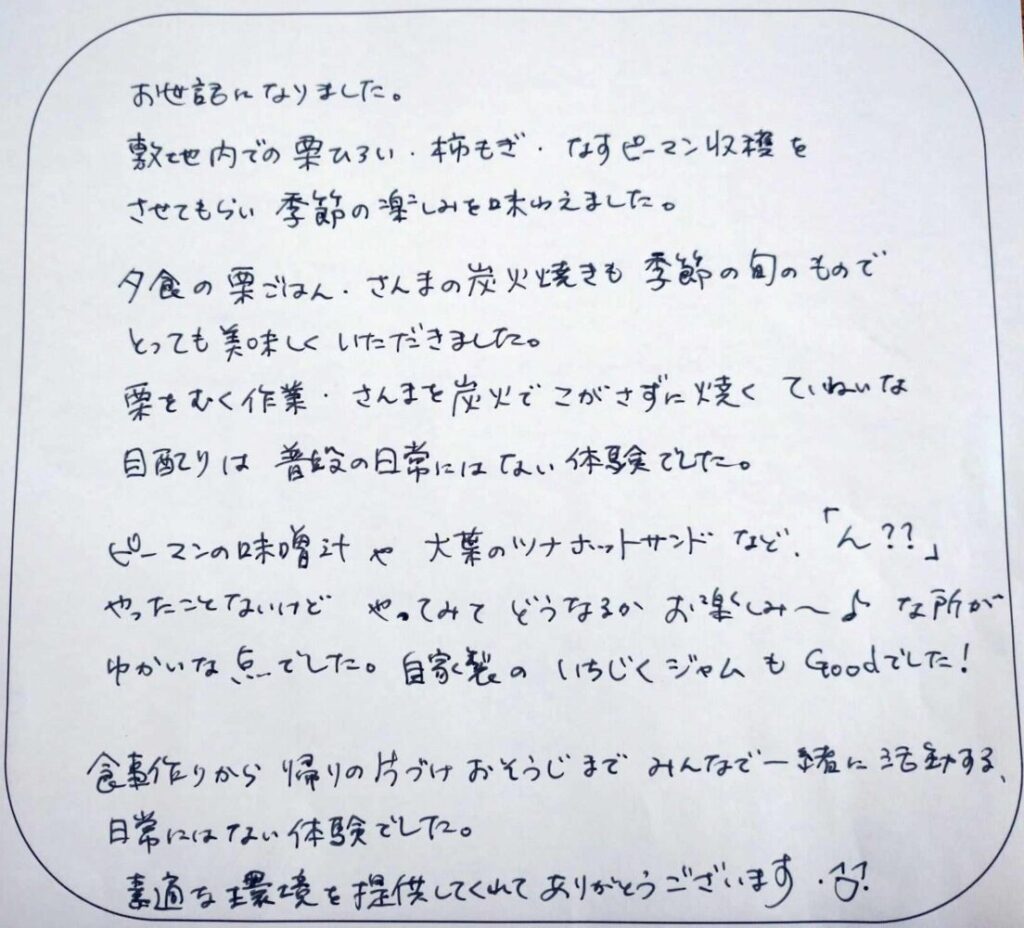 お世話になりました。
敷地内での栗ひろい・柿もぎ・なすピーマン収穫を
させてもらい 季節の楽しみを味わえました。
夕食の栗ごはん・さんまの炭火焼きも 季節の旬のもので
とっても美味しくいただきました。
栗をむく作業・さんまを炭火でこがさずに焼く ていねいな
目配りは 普段の日常にはない体験でした。
ピーマンの味噌汁や 大葉のツナホットサンドなど、「ん??」
やったことないけど やってみて どうなるか お楽しみ〜♪ な所が
ゆかいな点でした。自家製の いちじくジャムも Goodでした!
食事作りから 帰りの片づけ おそうじまで みんなで一緒に活動する、
日常にはない体験でした。
素適な環境を提供してくれてありがとうございます.